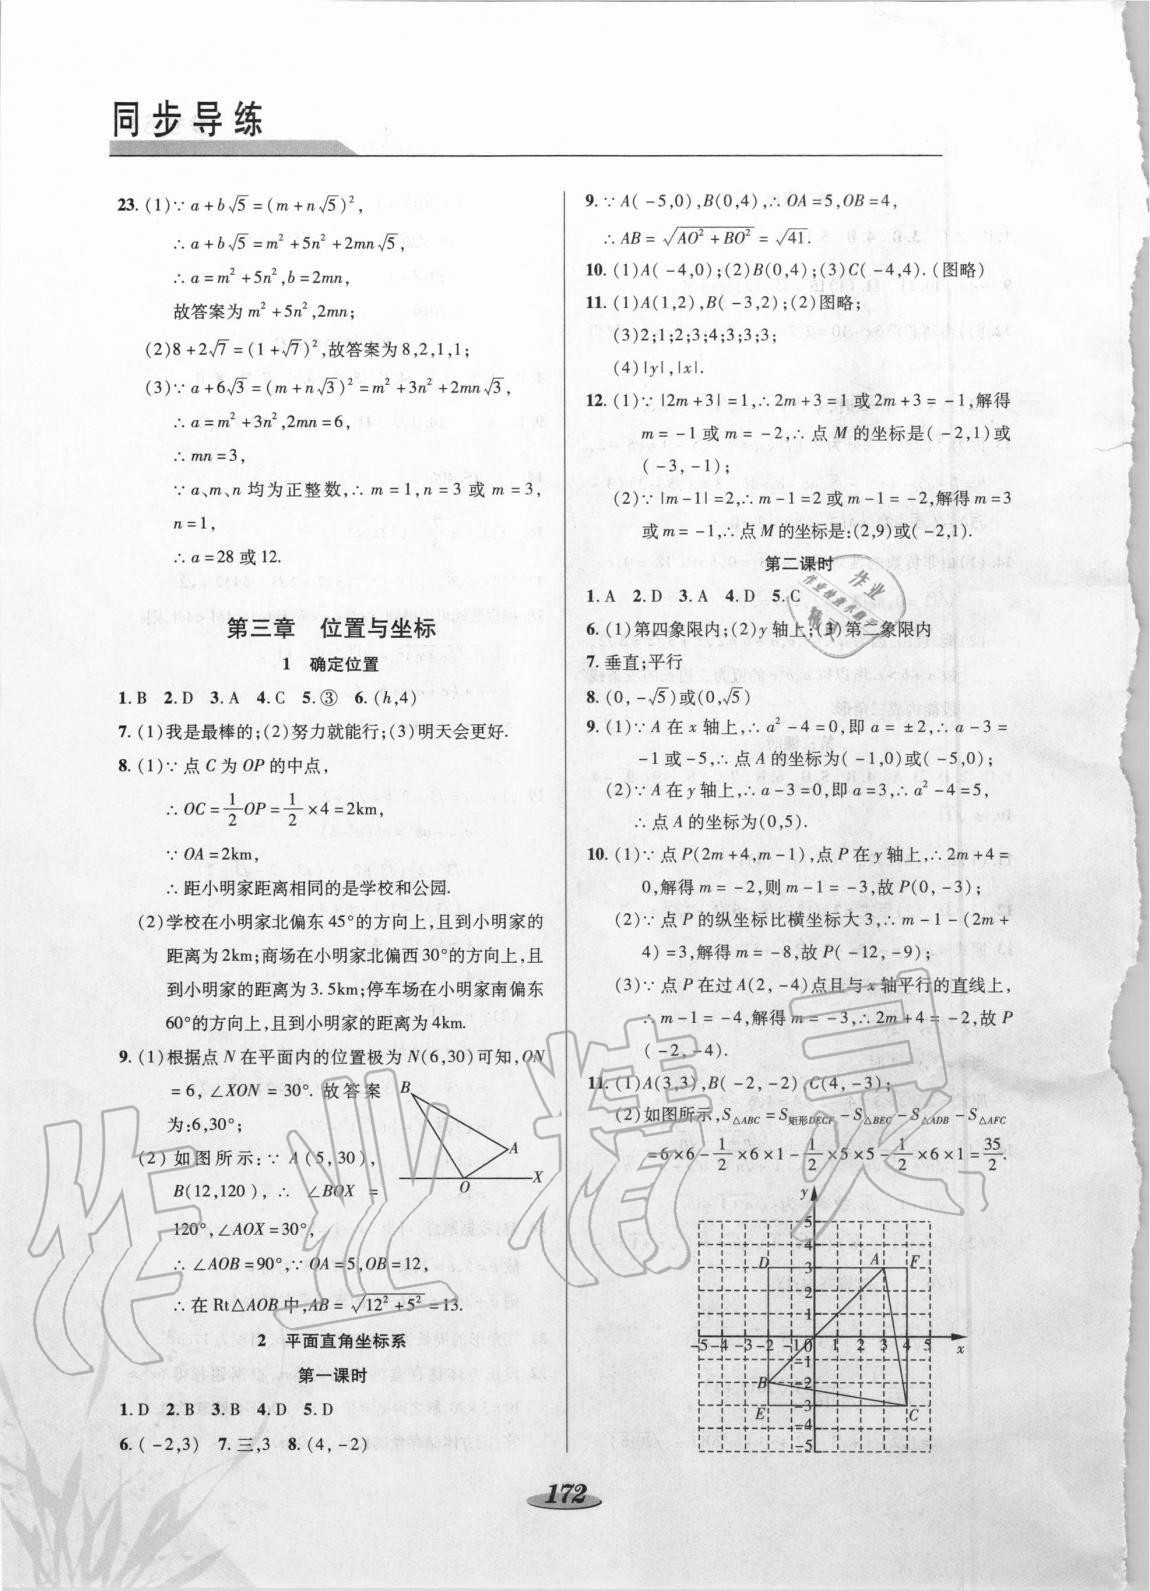 同步导练
23. (1)∵ a+b√5=(m+n√5)²,
∴ a+b√5=m²+5n²+2mn√5,
∴ a=m²+5n²,b=2mn,
故答案为 m²+5n²,2mn;
(2)8+2√7=(1+√7)²,故答案为 8,2,1,1;
(3)∵ a+6√3=(m+n√3)²=m²+3n²+2mn√3,
∴ a=m²+3n²,2mn=6,
∴ mn=3,
∵ a、m、n 均为正整数,∴ m=1,n=3 或 m=3,
n=1,
∴ a=28 或 12.
第三章 位置与坐标
1 确定位置
1. B 2. D 3. A 4. C 5. ③ 6. (h,4)
7. (1)我是最棒的;(2)努力就能行;(3)明天会更好.
8. (1)∵ 点 C 为 OP 的中点,
∴ OC=1/2OP=1/2×4=2km,
∵ OA=2km,
∴ 距小明家距离相同的是学校和公园.
(2)学校在小明家北偏东 45°的方向上,且到小明家的
距离为 2km;商场在小明家北偏西 30°的方向上,且
到小明家的距离为 3.5km;停车场在小明家南偏东
60°的方向上,且到小明家的距离为 4km.
9. (1)根据点 N 在平面内的位置极为 N(6,30)可知,ON
=6, ∠XON=30°. 故答案
为:6,30°;
(2) 如图所示:∵ A(5,30),
B(12,120), ∴ ∠BOX =
120°,∠AOX=30°,
∴ ∠AOB=90°,∵ OA=5,OB=12,
∴ 在 Rt△AOB 中,AB=√12²+5²=13.
B
A
O
X
2 平面直角坐标系
第一课时
1. D 2. B 3. B 4. D 5. D
6. (-2,3) 7. 三,3 8. (4,-2)
9. ∵ A(-5,0),B(0,4),∴ OA=5,OB=4,
∴ AB=√AO²+BO²=√41.
10. (1)A(-4,0);(2)B(0,4);(3)C(-4,4). (图略)
11. (1)A(1,2),B(-3,2);(2)图略;
(3)2;1;2;3;4;3;3;3;
(4)|y|,|x|.
12. (1)∵ |2m+3|=1,∴ 2m+3=1 或 2m+3=-1,解得
m=-1 或 m=-2,∴ 点 M 的坐标是(-2,1)或
(-3,-1);
(2)∵ |m-1|=2,∴ m-1=2 或 m-1=-2,解得 m=3
或 m=-1,∴ 点 M 的坐标是:(2,9)或(-2,1).
第二课时
1. A 2. D 3. A 4. D 5. C
6. (1)第四象限内;(2)y 轴上;(3)第二象限内
7. 垂直;平行
8. (0,-√5)或(0,√5)
9. (1)∵ A 在 x 轴上,∴ a²-4=0,即 a=±2,∴ a-3=
-1 或-5,∴ 点 A 的坐标为(-1,0)或(-5,0);
(2)∵ A 在 y 轴上,∴ a-3=0,即 a=3,∴ a²-4=5,
∴ 点 A 的坐标为(0,5).
10. (1)∵ 点 P(2m+4,m-1),点 P 在 y 轴上,∴ 2m+4=
0,解得 m=-2,则 m-1=-3,故 P(0,-3);
(2)∵ 点 P 的纵坐标比横坐标大 3,∴ m-1-(2m+
4)=3,解得 m=-8,故 P(-12,-9);
(3)∵ 点 P 在过 A(2,-4)点且与 x 轴平行的直线上,
∴ m-1=-4,解得 m=-3,∴ 2m+4=-2,故 P
(-2,-4).
11. (1)A(3,3),B(-2,-2),C(4,-3);
(2)如图所示,S△ABC=S矩形DECF-S△BEC-S△ADB-S△AFC
=6×6-1/2×6×1-1/2×5×5-1/2×6×1=35/2.
y
5
4
D 3 A F
2
1
-5-4-3-2-10 1 2 3 4 5 x
-1
B -2
E -3 C
-4
-5
172
作业精灵
作业
精灵